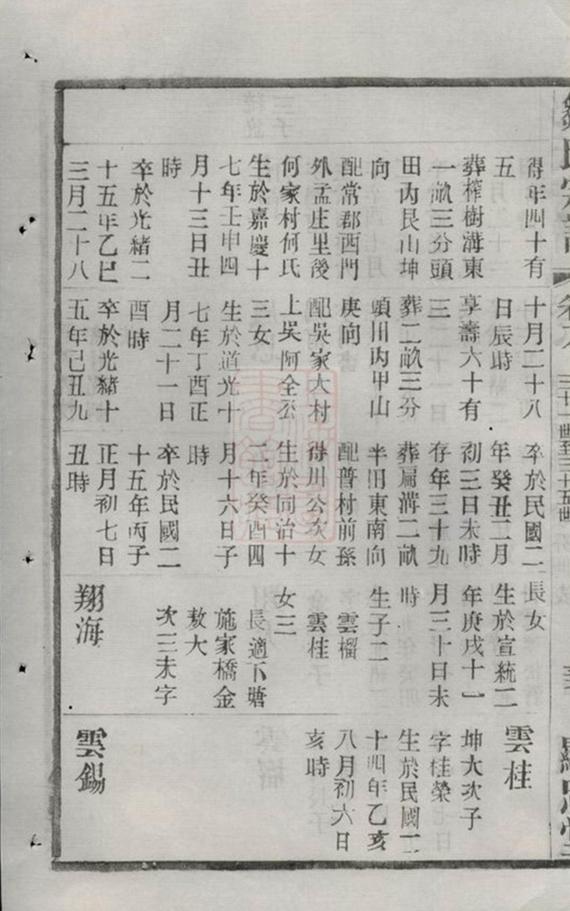 得年四十有
五
葬榨樹溝東
一畝三分頭
田丙艮山坤
向
配常郡西門
外孟庄里後
何家村何氏
生於嘉慶十
七年壬申四
月十三日丑
時
卒於光緒二
十五年乙巳
三月二十八
十月二十八
日辰時
享壽六十有
三
葬二畝三分
頭田丙甲山
庚向
配吳家大村
上吳阿全公
三女
生於道光十
七年丁酉正
月二十一日
酉時
卒於光緒十
五年己丑九
卒於民國二
年癸丑二月
初三日未時
存年三十九
葬扁溝二畝
半田東南向
配普村前孫
得川公次女
生於同治十
二年癸酉四
月十六日子
時
卒於民國二
十五年丙子
正月初七日
丑時
長女
生於宣統二
年庚戌十一
月三十日未
時
生子二
雲榴
雲桂
女三
長適下塘
施家橋金
敖大
次三未字
翔海
雲桂
坤大次子
字桂榮
生於民國二
十四年乙亥
八月初六日
亥時
雲錫
三十一世至三十五世